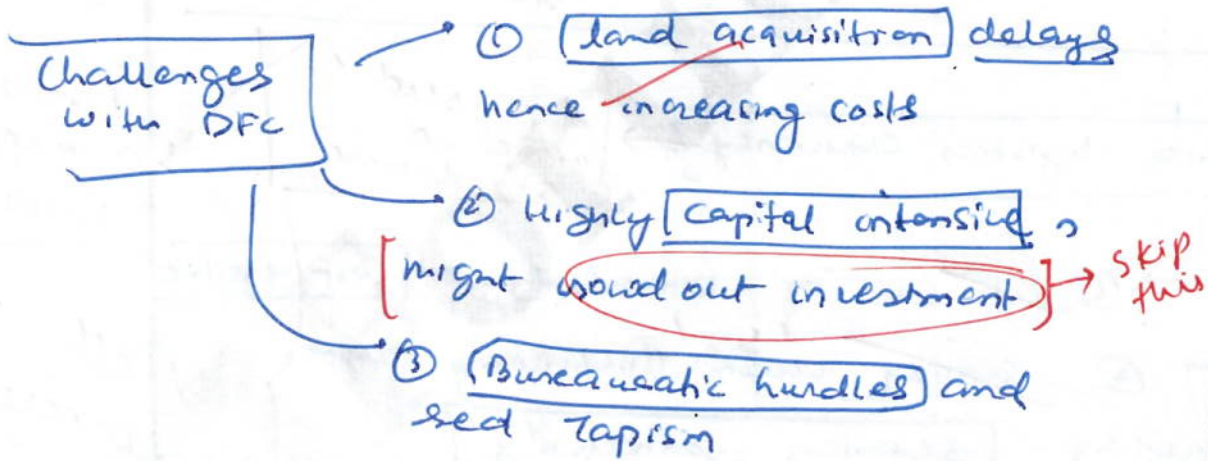 Challenges
with DFC
① land acquisition delays
hence increasing costs
② Highly Capital intensive,
might crowd out investment
skip
this
③ Bureaucratic hurdles and
red Tapism